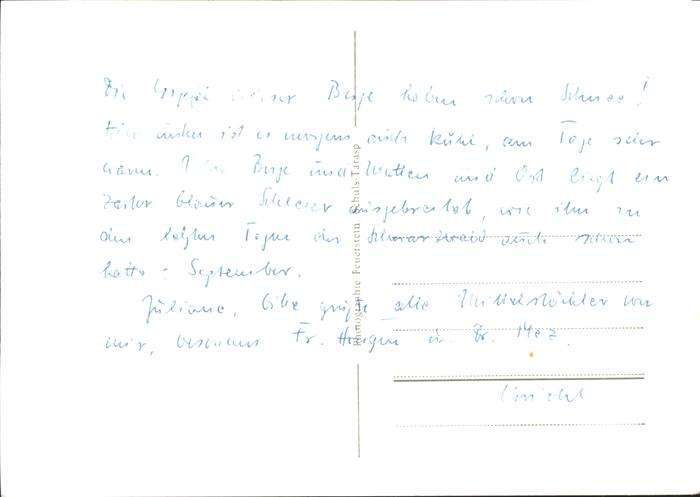 Die Gipfel dieser Berge haben schon Schnee!
Hier unten ist es morgens auch kühl, am Tage sehr
warm. Über Berge und Matten und Ort liegt ein
zarter blauer Schleier ausgebreitet, wie ihn in
den letzten Tagen der Schwarzwald auch schon
hatte - September.
Juliane, bitte grüße alle Mittelstädter von
mir, besonders Fr. Haegen u. Fr. Mez.
Photographie Feuerstein Schuls-Tarasp